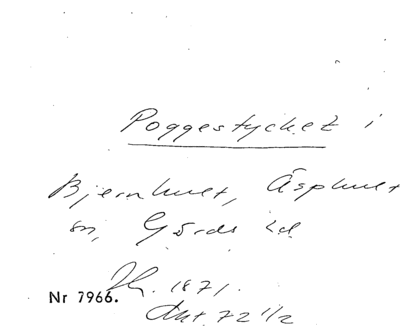 Poggestycket i
Bjernhult, Äsphult
sn, Gärds hd
1871.
Nr 7966.
Ant. 72 1/2